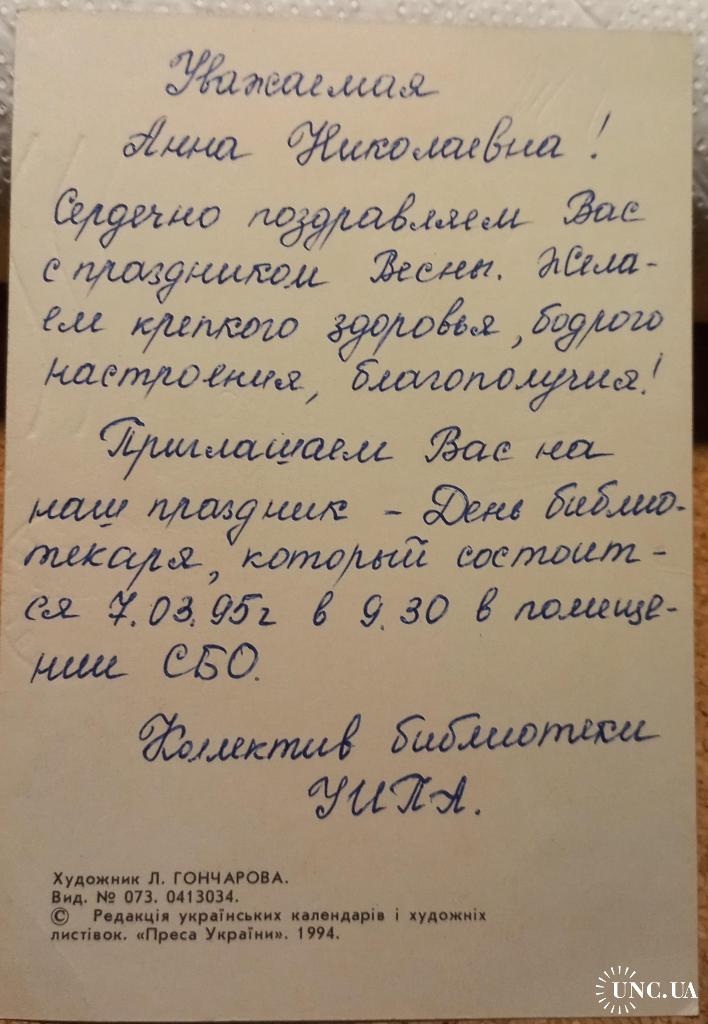 Уважаемая
Анна Николаевна!
Сердечно поздравляем Вас
с праздником Весны. Жела-
ем крепкого здоровья, бодрого
настроения, благополучия!
Приглашаем Вас на
наш праздник – День библио-
текаря, который состоит-
ся 7.03.95г в 9.30 в помеще-
нии СБО.
Коллектив библиотеки
УИПА.
Художник Л. ГОНЧАРОВА.
Вид. № 073. 0413034.
© Редакція українських календарів і художніх
листівок. «Преса України». 1994.
UNC.UA